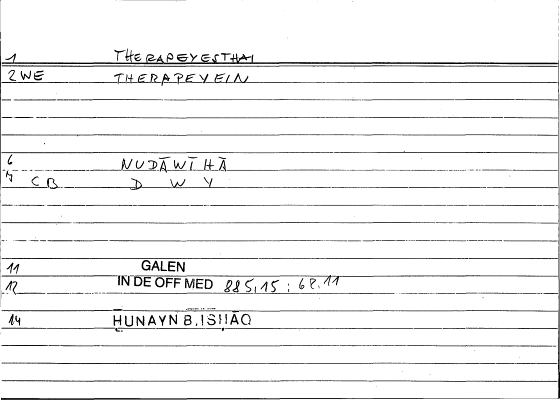 1 THERAPEYESTHAI
2 WE THERAPEYEIN
6 NUDĀWĪHĀ
7 CB D W Y
11 GALEN
12 IN DE OFF MED 885,15 : 68.11
14 HUNAYN B. ISḤĀQ